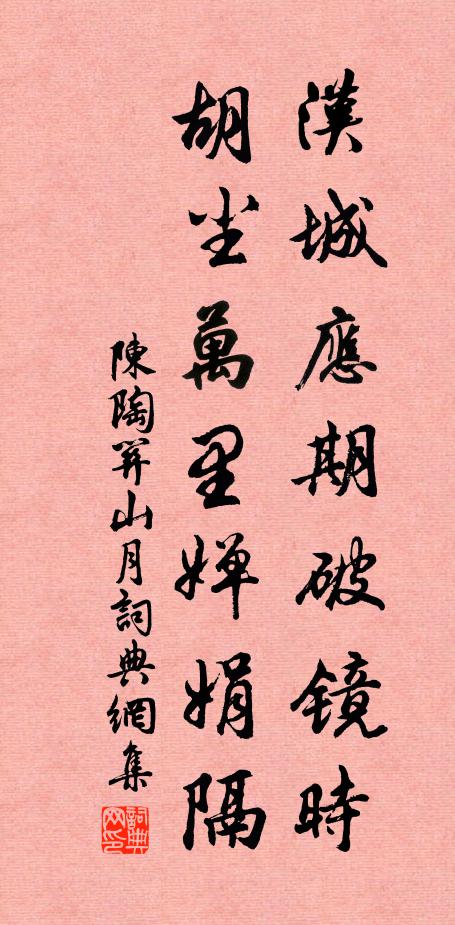 漢城應期破镜時
胡尘萬里婵娟隔
陳陶関山月詞典網集
詞典网印